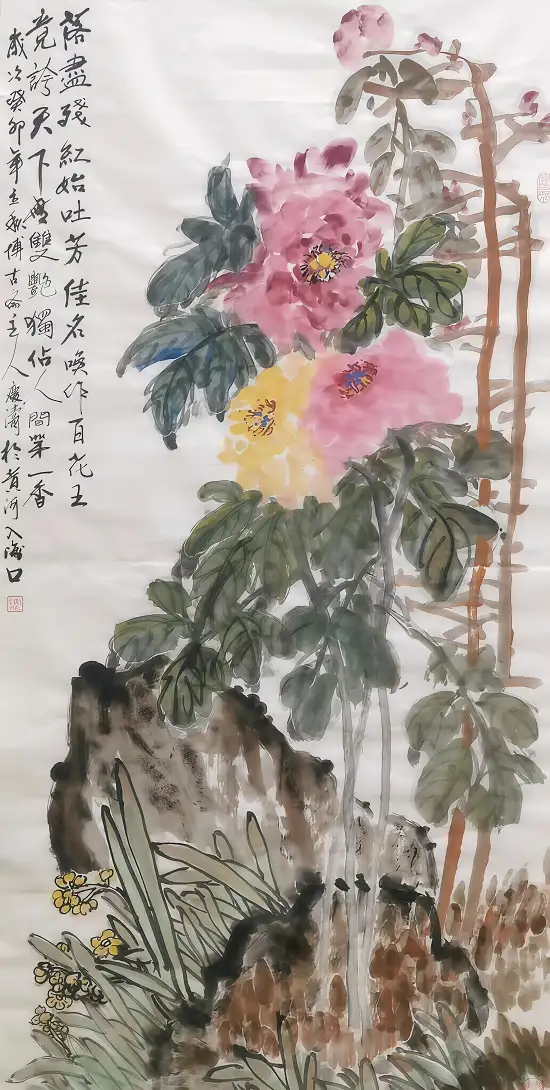 落盡殘紅始吐芳佳名喚作百花王
竞誇天下無雙艷獨佔人間苐一香
歲次癸卯年立秋博古斋主人慶濤於黃河入海口